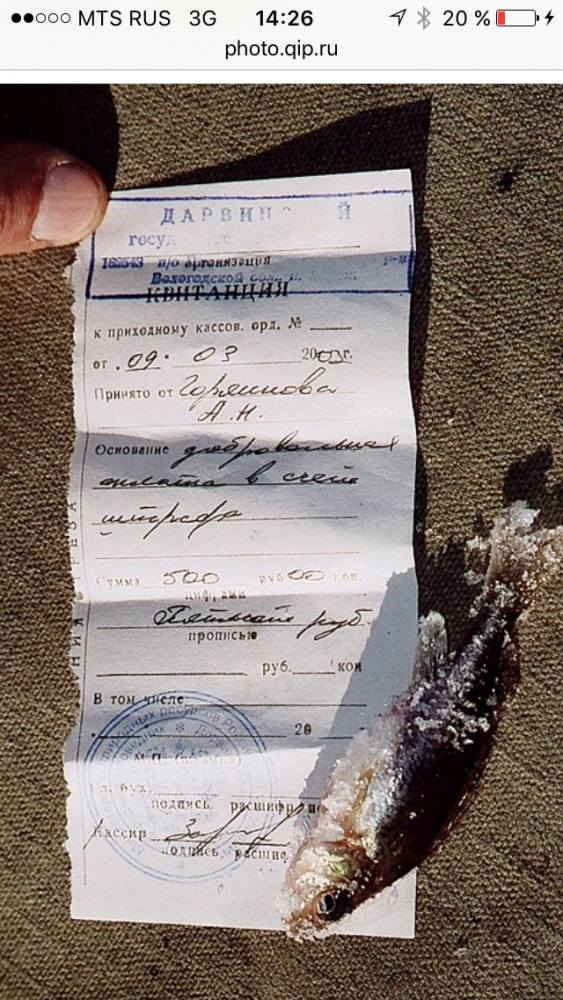 MTS RUS 3G 14:26 20 %
photo.qip.ru
ДАРВИН Й
госуд
п/о организация
Вологодской обл.
КВИТАНЦИЯ
к приходному кассов. орд. №
от 09. 03 2003г.
Принято от Горяинова
А.Н.
Основание добровольная
оплата в счёт
штрафа
Сумма 500 руб 00 коп.
цифрами
Пятьсот руб.
прописью
руб. коп
В том числе
20
М.П. (штампа)
Гл. бух.
подпись расшифр по
Кассир
подпись расшиф